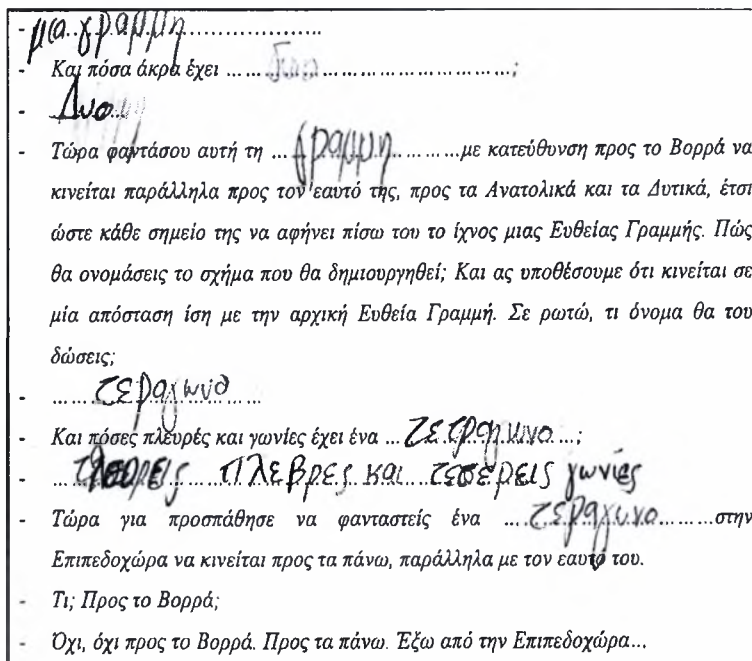 - μια γραμμη
- Και πόσα άκρα έχει ... δυο ...;
- Δυο
- Τώρα φαντάσου αυτή τη ... γραμμη ... με κατεύθυνση προς το Βορρά να
κινείται παράλληλα προς τον εαυτό της, προς τα Ανατολικά και τα Δυτικά, έτσι
ώστε κάθε σημείο της να αφήνει πίσω του το ίχνος μιας Ευθείας Γραμμής. Πώς
θα ονομάσεις το σχήμα που θα δημιουργηθεί; Και ας υποθέσουμε ότι κινείται σε
μία απόσταση ίση με την αρχική Ευθεία Γραμμή. Σε ρωτώ, τι όνομα θα του
δώσεις;
- ... τεραγωνο ...
- Και πόσες πλευρές και γωνίες έχει ένα ... τετραγωνο ...;
- πλεβρες και τεσερεις γωνίες
- Τώρα για προσπάθησε να φανταστείς ένα ... τεραγωνο ... στην
Επιπεδοχώρα να κινείται προς τα πάνω, παράλληλα με τον εαυτό του.
- Τι; Προς το Βορρά;
- Όχι, όχι προς το Βορρά. Προς τα πάνω. Έξω από την Επιπεδοχώρα...